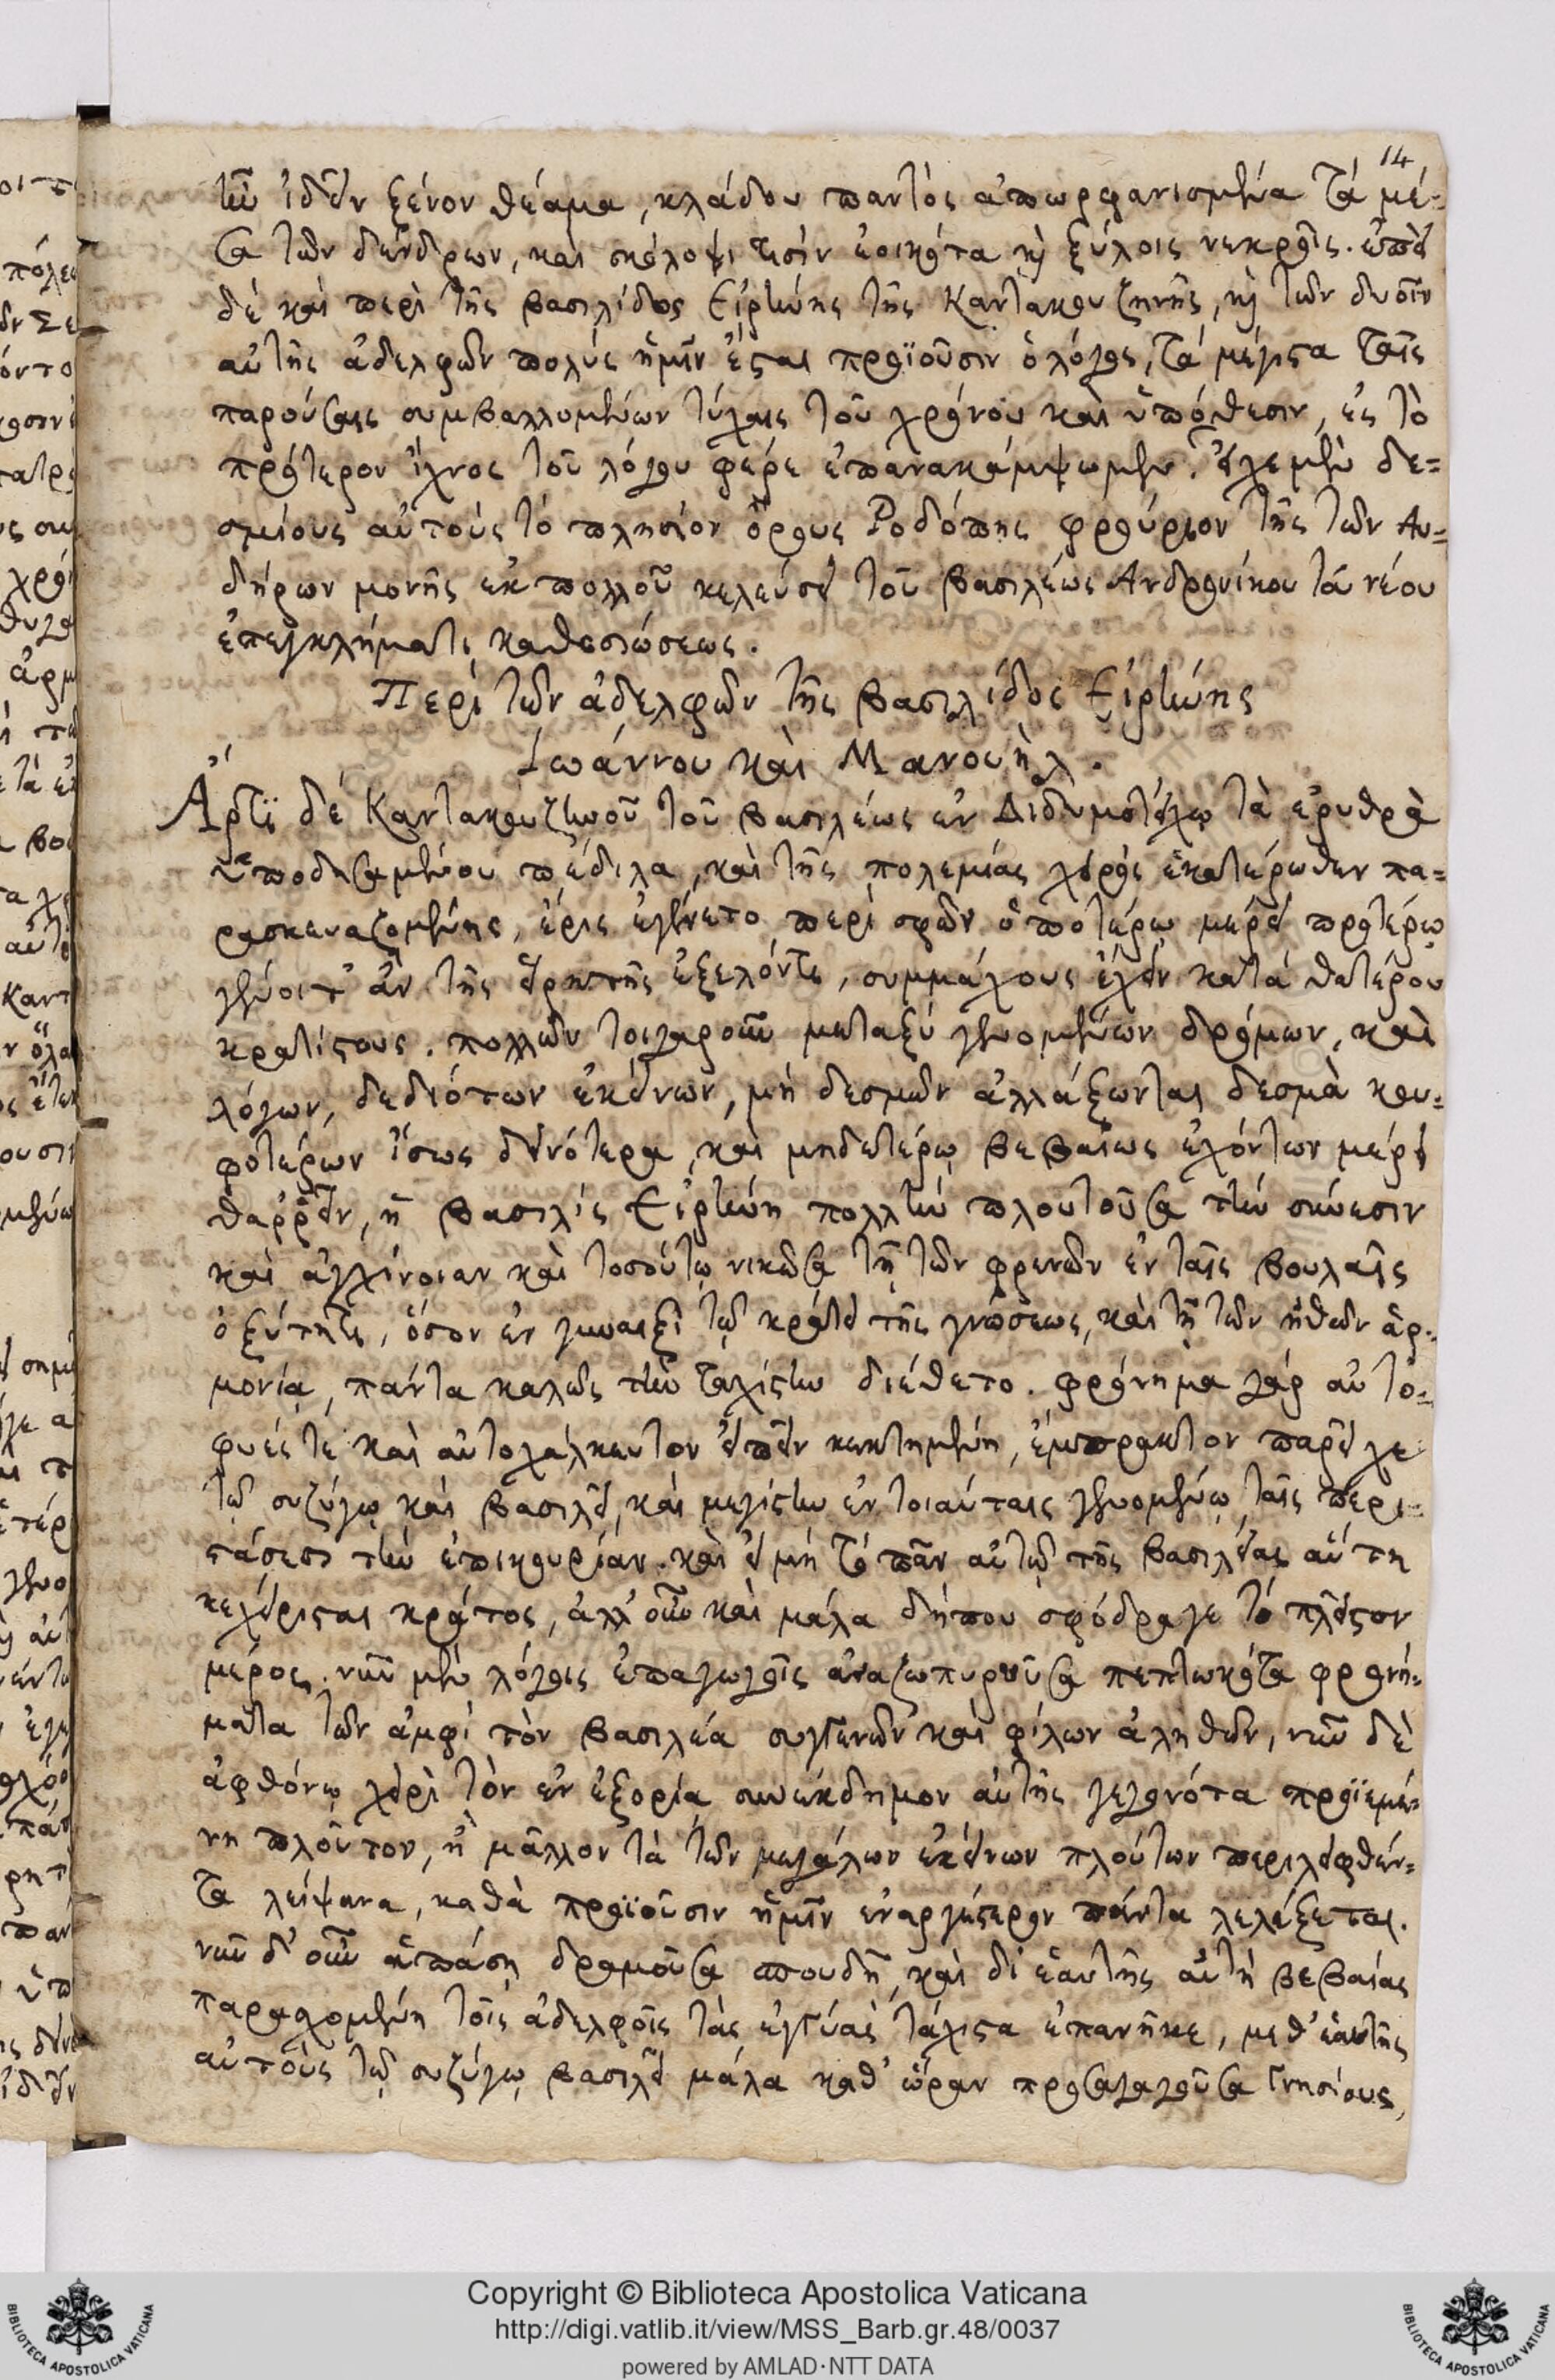 14
ἦν ἰδεῖν ξένον θέαμα, κλάδου παντὸς ἀπωρφανισμένα τὰ μέ-
σα τῶν δένδρων, καὶ σκόλοψί τισιν ἐοικότα καὶ ξύλοις νεκροῖς. ἐπεὶ
δὲ καὶ περὶ τῆς βασιλίδος Εἰρήνης τῆς Καντακουζηνῆς, καὶ τῶν δυοῖν
αὐτῆς ἀδελφῶν πολὺς ἡμῖν ἔσται προϊοῦσιν ὁ λόγος, τὰ μέγιστα ταῖς
παρούσαις συμβαλλομένων τύχαις τοῦ χρόνου καὶ ὑπόθεσιν, εἰς τὸ
πρότερον ἴχνος τοῦ λόγου φέρε ἐπανακάμψωμεν. εἶχε μὲν δε-
σμίους αὐτοὺς τὸ πλησίον ὄρους Ῥοδόπης φρούριον τῆς τῶν Αν-
δήρων μονῆς ἐκ πολλοῦ κελεύσει τοῦ βασιλέως Ἀνδρονίκου τοῦ νέου
ἐπεγκλήματι καθοσιώσεως.
Περὶ τῶν ἀδελφῶν τῆς βασιλίδος Εἰρήνης
Ἰωάννου καὶ Μανουήλ.
Ἄρτι δὲ Καντακουζηνοῦ τοῦ βασιλέως ἐν Διδυμοτείχῳ τὰ ἐρυθρὰ
ὑποδησαμένου πέδιλα, καὶ τῆς πολεμίας χειρὸς ἑκατέρωθεν πα-
ρασκευαζομένης, ἔρις ἐγένετο περὶ σφῶν ὁποτέρῳ μέρει προτέρῳ
γένοιτ' ἂν τῆς εἱρκτῆς ἐξελόντι, συμμάχους ἔχειν κατὰ θατέρου
κρατίστους. πολλῶν τοιγαροῦν μεταξὺ γενομένων δρόμων, καὶ
λόγων, δεδιότων ἐκείνων, μὴ δεσμῶν ἀλλάξωνται δεσμὰ κου-
φοτέρων ἴσως δεινότερα, καὶ μηδετέρῳ βεβαίως ἐχόντων μέρει
θαρρεῖν, ἡ βασιλὶς Εἰρήνη πολλὴν πλουτοῦσα τὴν σύνεσιν
καὶ ἀγχίνοιαν καὶ τοσούτῳ νικῶσα τῇ τῶν φρενῶν ἐν ταῖς βουλαῖς
ὀξύτητι, ὅσον ἐν γυναιξὶ τῷ κράτει τῆς γνώσεως, καὶ τῇ τῶν ἠθῶν ἁρ-
μονίᾳ, πάντα καλῶς τὴν ταχίστην διέθετο. φρόνημα γὰρ αὐτο-
φυές τε καὶ αὐτοχάλκευτον εἰπεῖν κεκτημένη, ἔμπρακτον παρεῖχε
τῷ συζύγῳ καὶ βασιλεῖ, καὶ μεγίστην ἐν τοιαύταις γενομένῳ ταῖς περι-
στάσεσι τὴν ἐπικουρίαν. καὶ εἰ μὴ τὸ πᾶν αὐτῷ τῆς βασιλείας αὕτη
κεχάρισται κράτος, ἀλλ' οὖν καὶ μάλα δήπου σφόδρα γε τὸ πλεῖστον
μέρος. νῦν μὲν λόγοις ἐπαγωγοῖς ἀναζωπυροῦσα πεπτωκότα φρονή-
ματα τῶν ἀμφὶ τὸν βασιλέα συγγενῶν καὶ φίλων ἀληθῶν, νῦν δὲ
ἀφθόνῳ χειρὶ τὸν ἐν ἐξορίᾳ συνέκδημον αὐτῆς γεγονότα προϊεμέ-
νη πλοῦτον, ἢ μᾶλλον τὰ τῶν μεγάλων ἐκείνων πλούτων περιλειφθέν-
τα λείψανα, καθὰ προϊοῦσιν ἡμῖν ἐναργέστερον πάντα λελέξεται.
νῦν δ' οὖν ἁπάσῃ δραμοῦσα σπουδῇ, καὶ δι' ἑαυτῆς αὐτὴ βεβαίας
παρασχομένη τοῖς ἀδελφοῖς τὰς ἐγγύας τάχιστα ἐπανῆκε, μεθ' ἑαυτῆς
αὐτοὺς τῷ συζύγῳ βασιλεῖ μάλα καθ' ὥραν προσαγαγοῦσα γνησίους,
Copyright © Biblioteca Apostolica Vaticana
http://digi.vatlib.it/view/MSS_Barb.gr.48/0037
powered by AMLAD·NTT DATA
BIBLIOTECA APOSTOLICA VATICANA
BIBLIOTECA APOSTOLICA VATICANA